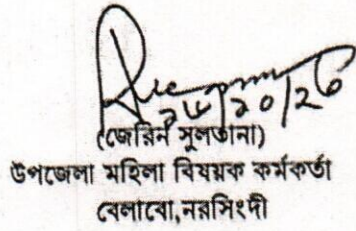 (জেরিন সুলতানা)
উপজেলা মহিলা বিষয়ক কর্মকর্তা
বেলাবো,নরসিংদী